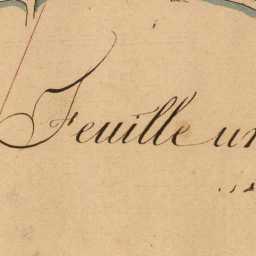 Feuille un